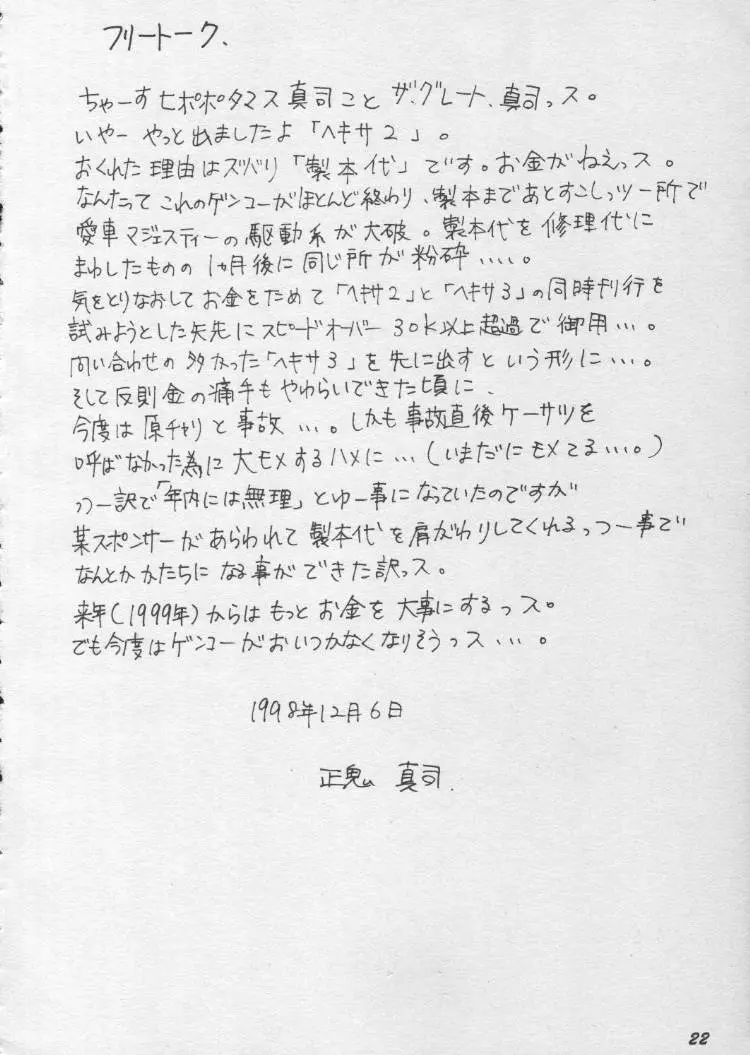 フリートーク、
ちゃーす ヒポポタマス真司こと ザ、グレート、真司っス。
いやー やっと出ましたよ「ヘキサ2」。
おくれた理由はズバリ「製本代」です。お金がねえっス。
なんたって これのゲンコーがほとんど終わり、製本まであとすこしっツー所で
愛車マジェスティーの駆動系が大破。製本代を修理代に
まわしたものの 1ヶ月後に同じ所が粉砕……。
気をとりなおしてお金をためて「ヘキサ2」と「ヘキサ3」の同時刊行を
試みようとした矢先にスピードオーバー 30k以上超過で御用…。
問い合わせの多かった「ヘキサ3」を先に出すという形に…。
そして反則金の痛手もやわらいできた頃に、
今度は原チャリと事故…。しかも事故直後ケーサツを
呼ばなかった為に大モメするハメに…(いまだにモメてる…。)
っつー訳で「年内には無理」とゆー事になっていたのですが
某スポンサーがあらわれて製本代を肩がわりしてくれるっつー事で
なんとかかたちになる事ができた訳っス。
来年(1999年)からはもっとお金を大事にするっス。
でも今度はゲンコーがおいつかなくなりそうっス…。
1998年12月6日
正鬼 真司.
22